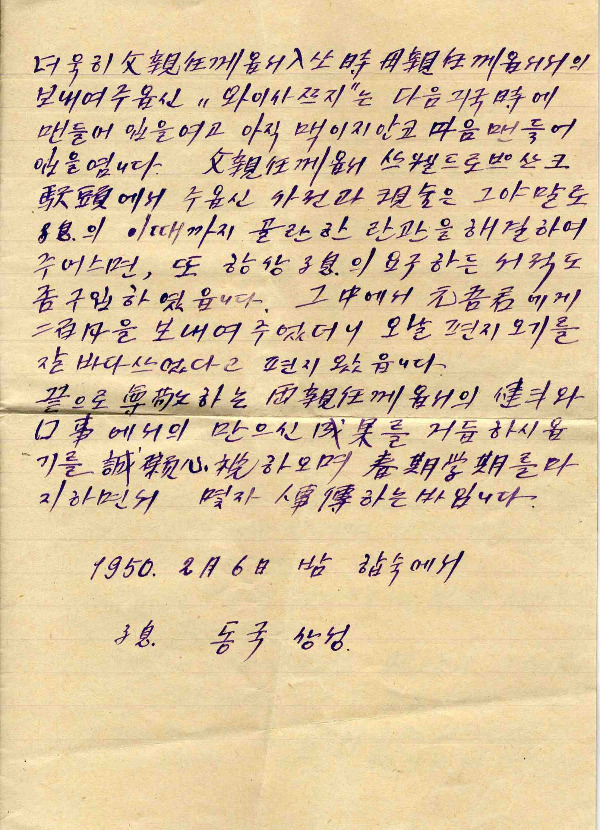 더욱히 父親任께옵서 入싸時 母親任께옵서의
보내여주옵신 „와이사쯔지"는 다음 귀국時에
맨들어 입을여고 아직 맥이지안고 마음 맨들어
입을염니다. 父親任께옵서 쓰웰드로브쓰크
駅頭에서 주옵신 사전과 現金은 그야말로
子息의 이때까지 곤란한 란관을 해결하여
주어스면, 또 항상 子息의 요구하든 서적도
좀 구입하였읍니다. 그中에서 元吾君에게
을 보내여 주었더니 오날 편지 오기를
잘 바다스였다고 편지 왔읍니다.
끝으로 尊敬하는 母親任께옵서의 健 와
事에서의 만으신 成果를 거듭하시옵
기를 誠 心 하오며 春期学期를 마
지하면서 몇자 하는바입니다.
1950. 2月 6日 밤 합숙에서
子息. 동국 상성.